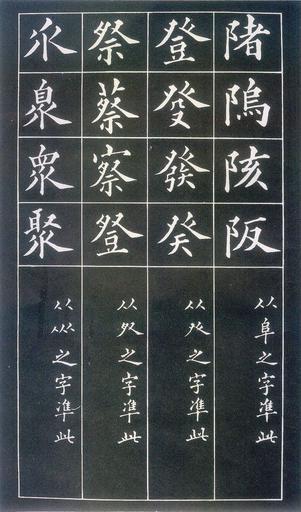 陼隖陔阪
从阜之字準此
登癹發癸
从癶之字準此
祭蔡察豋
从之字準此
乑臮眾聚
从乑之字準此